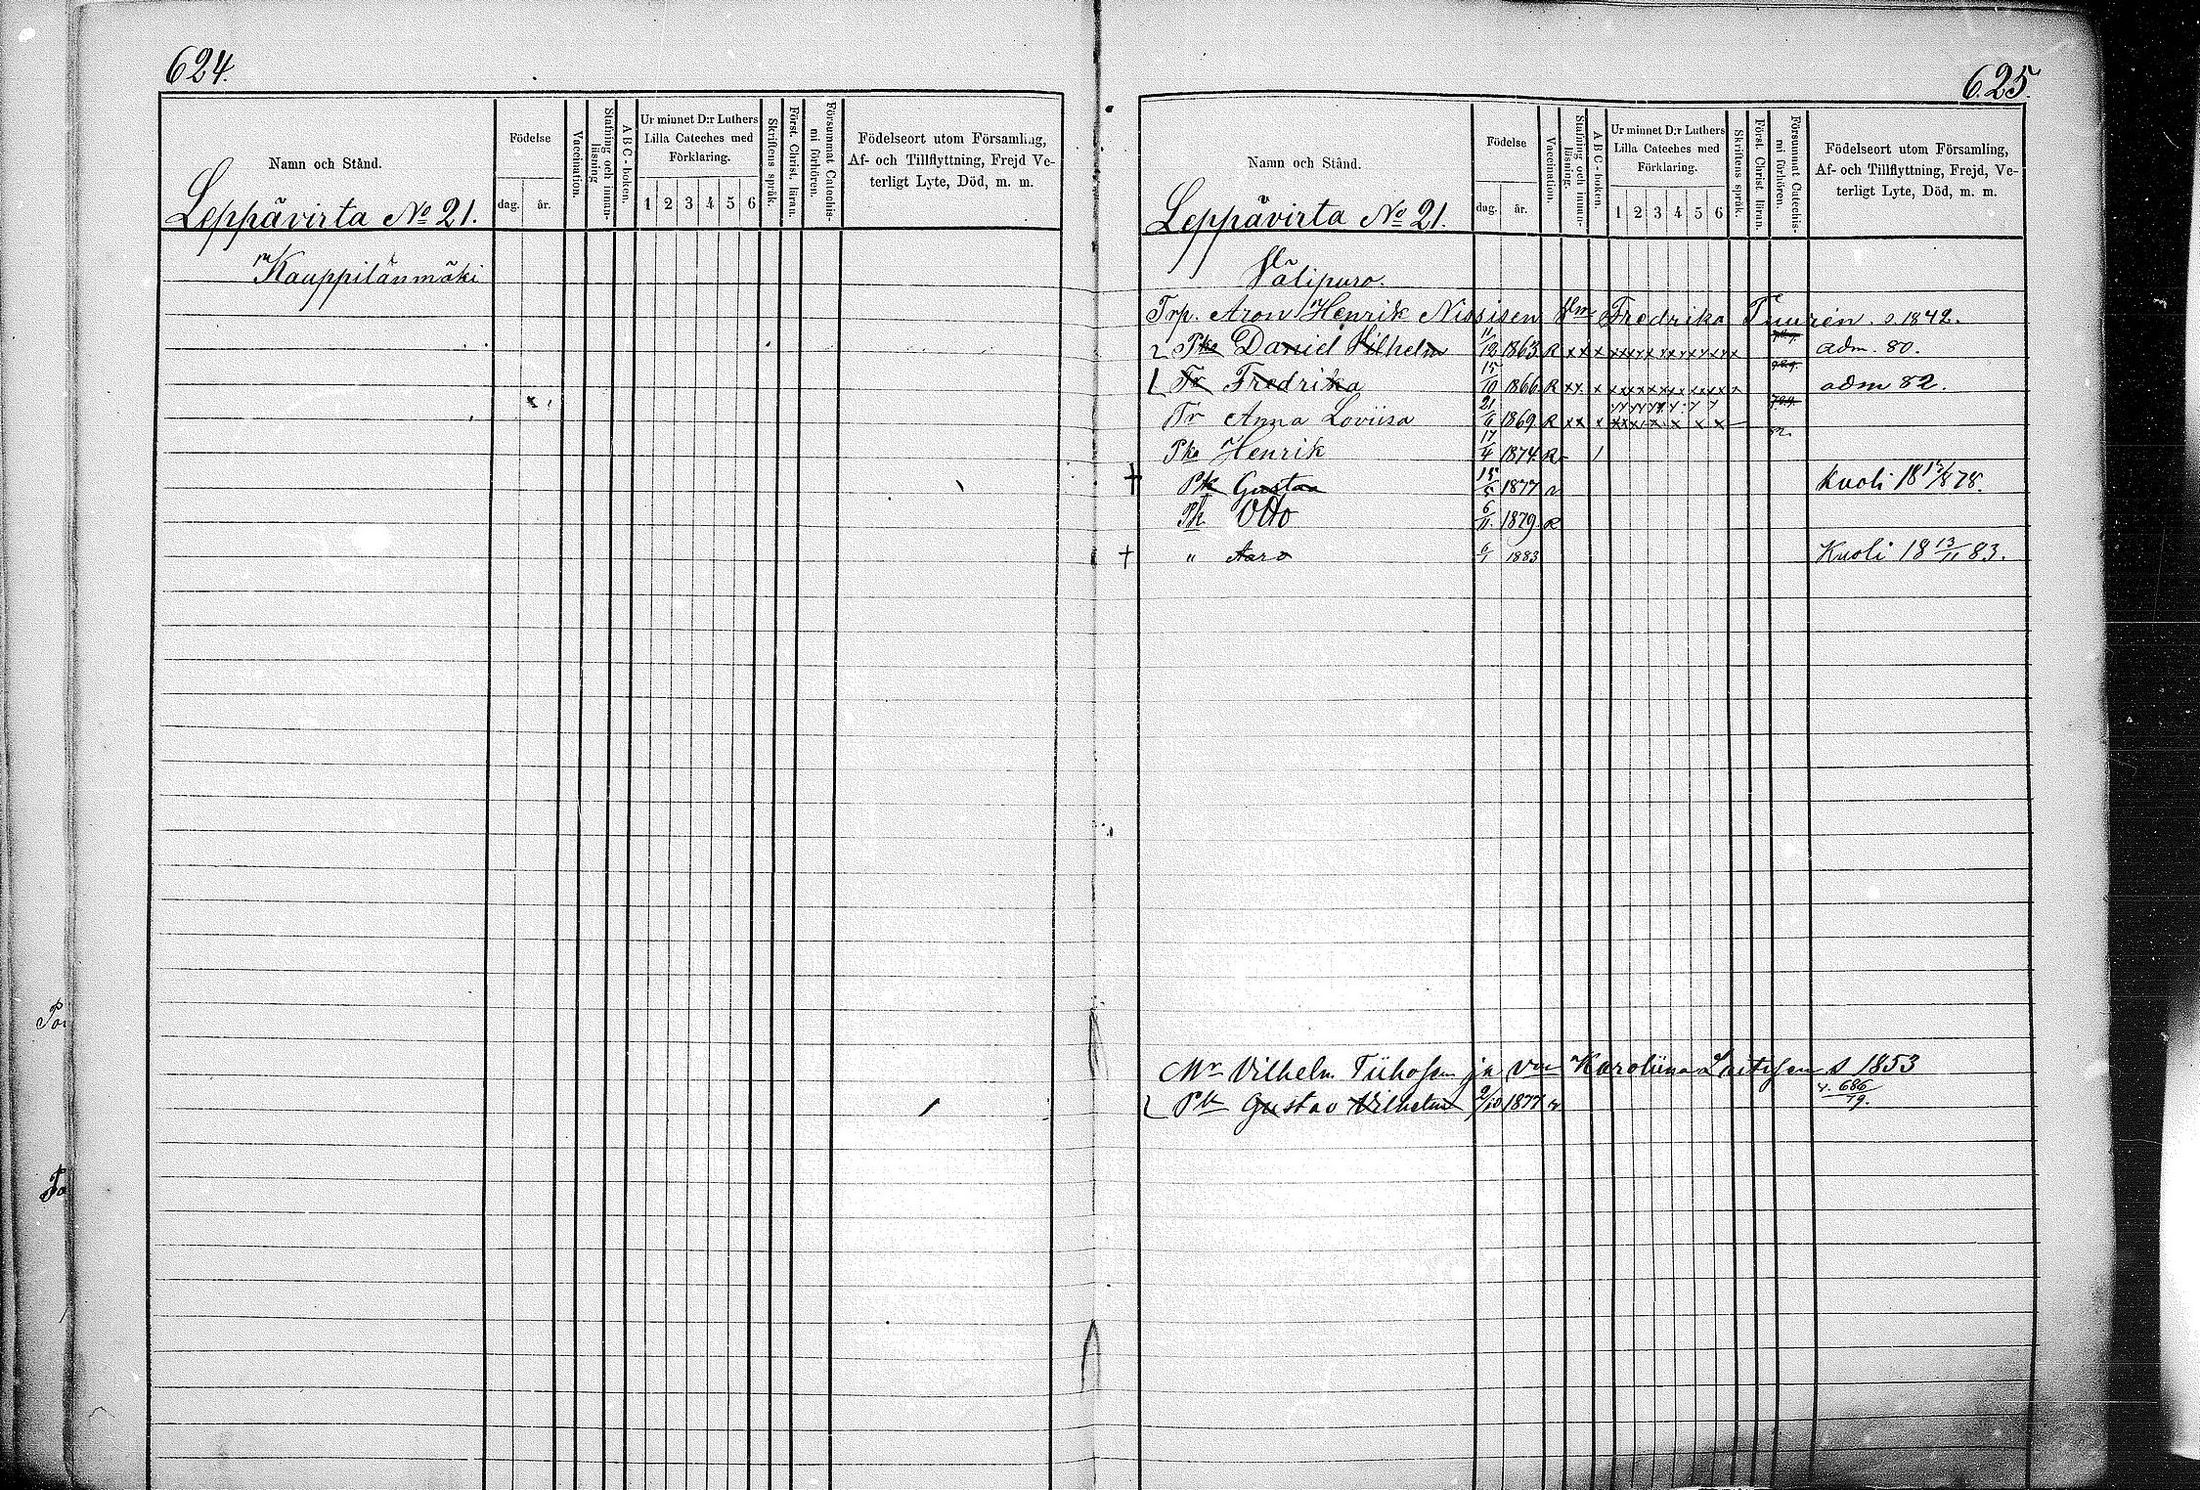 624.
Namn och Stånd.
Födelse
dag. år.
Vaccination.
Stafning och innan-läsning
ABC-boken.
Ur minnet D:r Luthers Lilla Cateches med Förklaring.
1 2 3 4 5 6
Skriftens språk.
Först. Christ. läran.
Försummat Catechismi förhören.
Födelseort utom Församling,
Af- och Tillflyttning, Frejd Ve-
terligt Lyte, Död, m. m.
Leppävirta No 21.
Kauppilänmäki
625.
Namn och Stånd.
Födelse
dag. år.
Vaccination.
Stafning och innan-läsning.
ABC-boken.
Ur minnet D:r Luthers Lilla Cateches med Förklaring.
1 2 3 4 5 6
Skriftens språk.
Först. Christ. läran.
Försummat Catechismi förhören.
Födelseort utom Församling,
Af- och Tillflyttning, Frejd, Ve-
terligt Lyte, Död, m. m.
Leppävirta No 21.
Välipuro.
Trp. Aron Henrik Nissisen Fredrika Tuurén. s. 1842.
Pka Daniel Vilhelm 11/12 1863 R xx x adm. 80.
Tr Fredrika 15/10 1866 R xx x adm 82.
Tr Anna Loviisa 1869 R xx x
Pka Henrik 17/4 1874 R
† Pk Gustaa 15/5 1877 Kuoli 18 78.
Pk Otto 6/11 1879 R
† " Aaro 1883 Kuoli 18 13/11 83.
Mr Vilhelm ja Karoliina s 1853
Pk Gustav Vilhelm 1877 686/79.